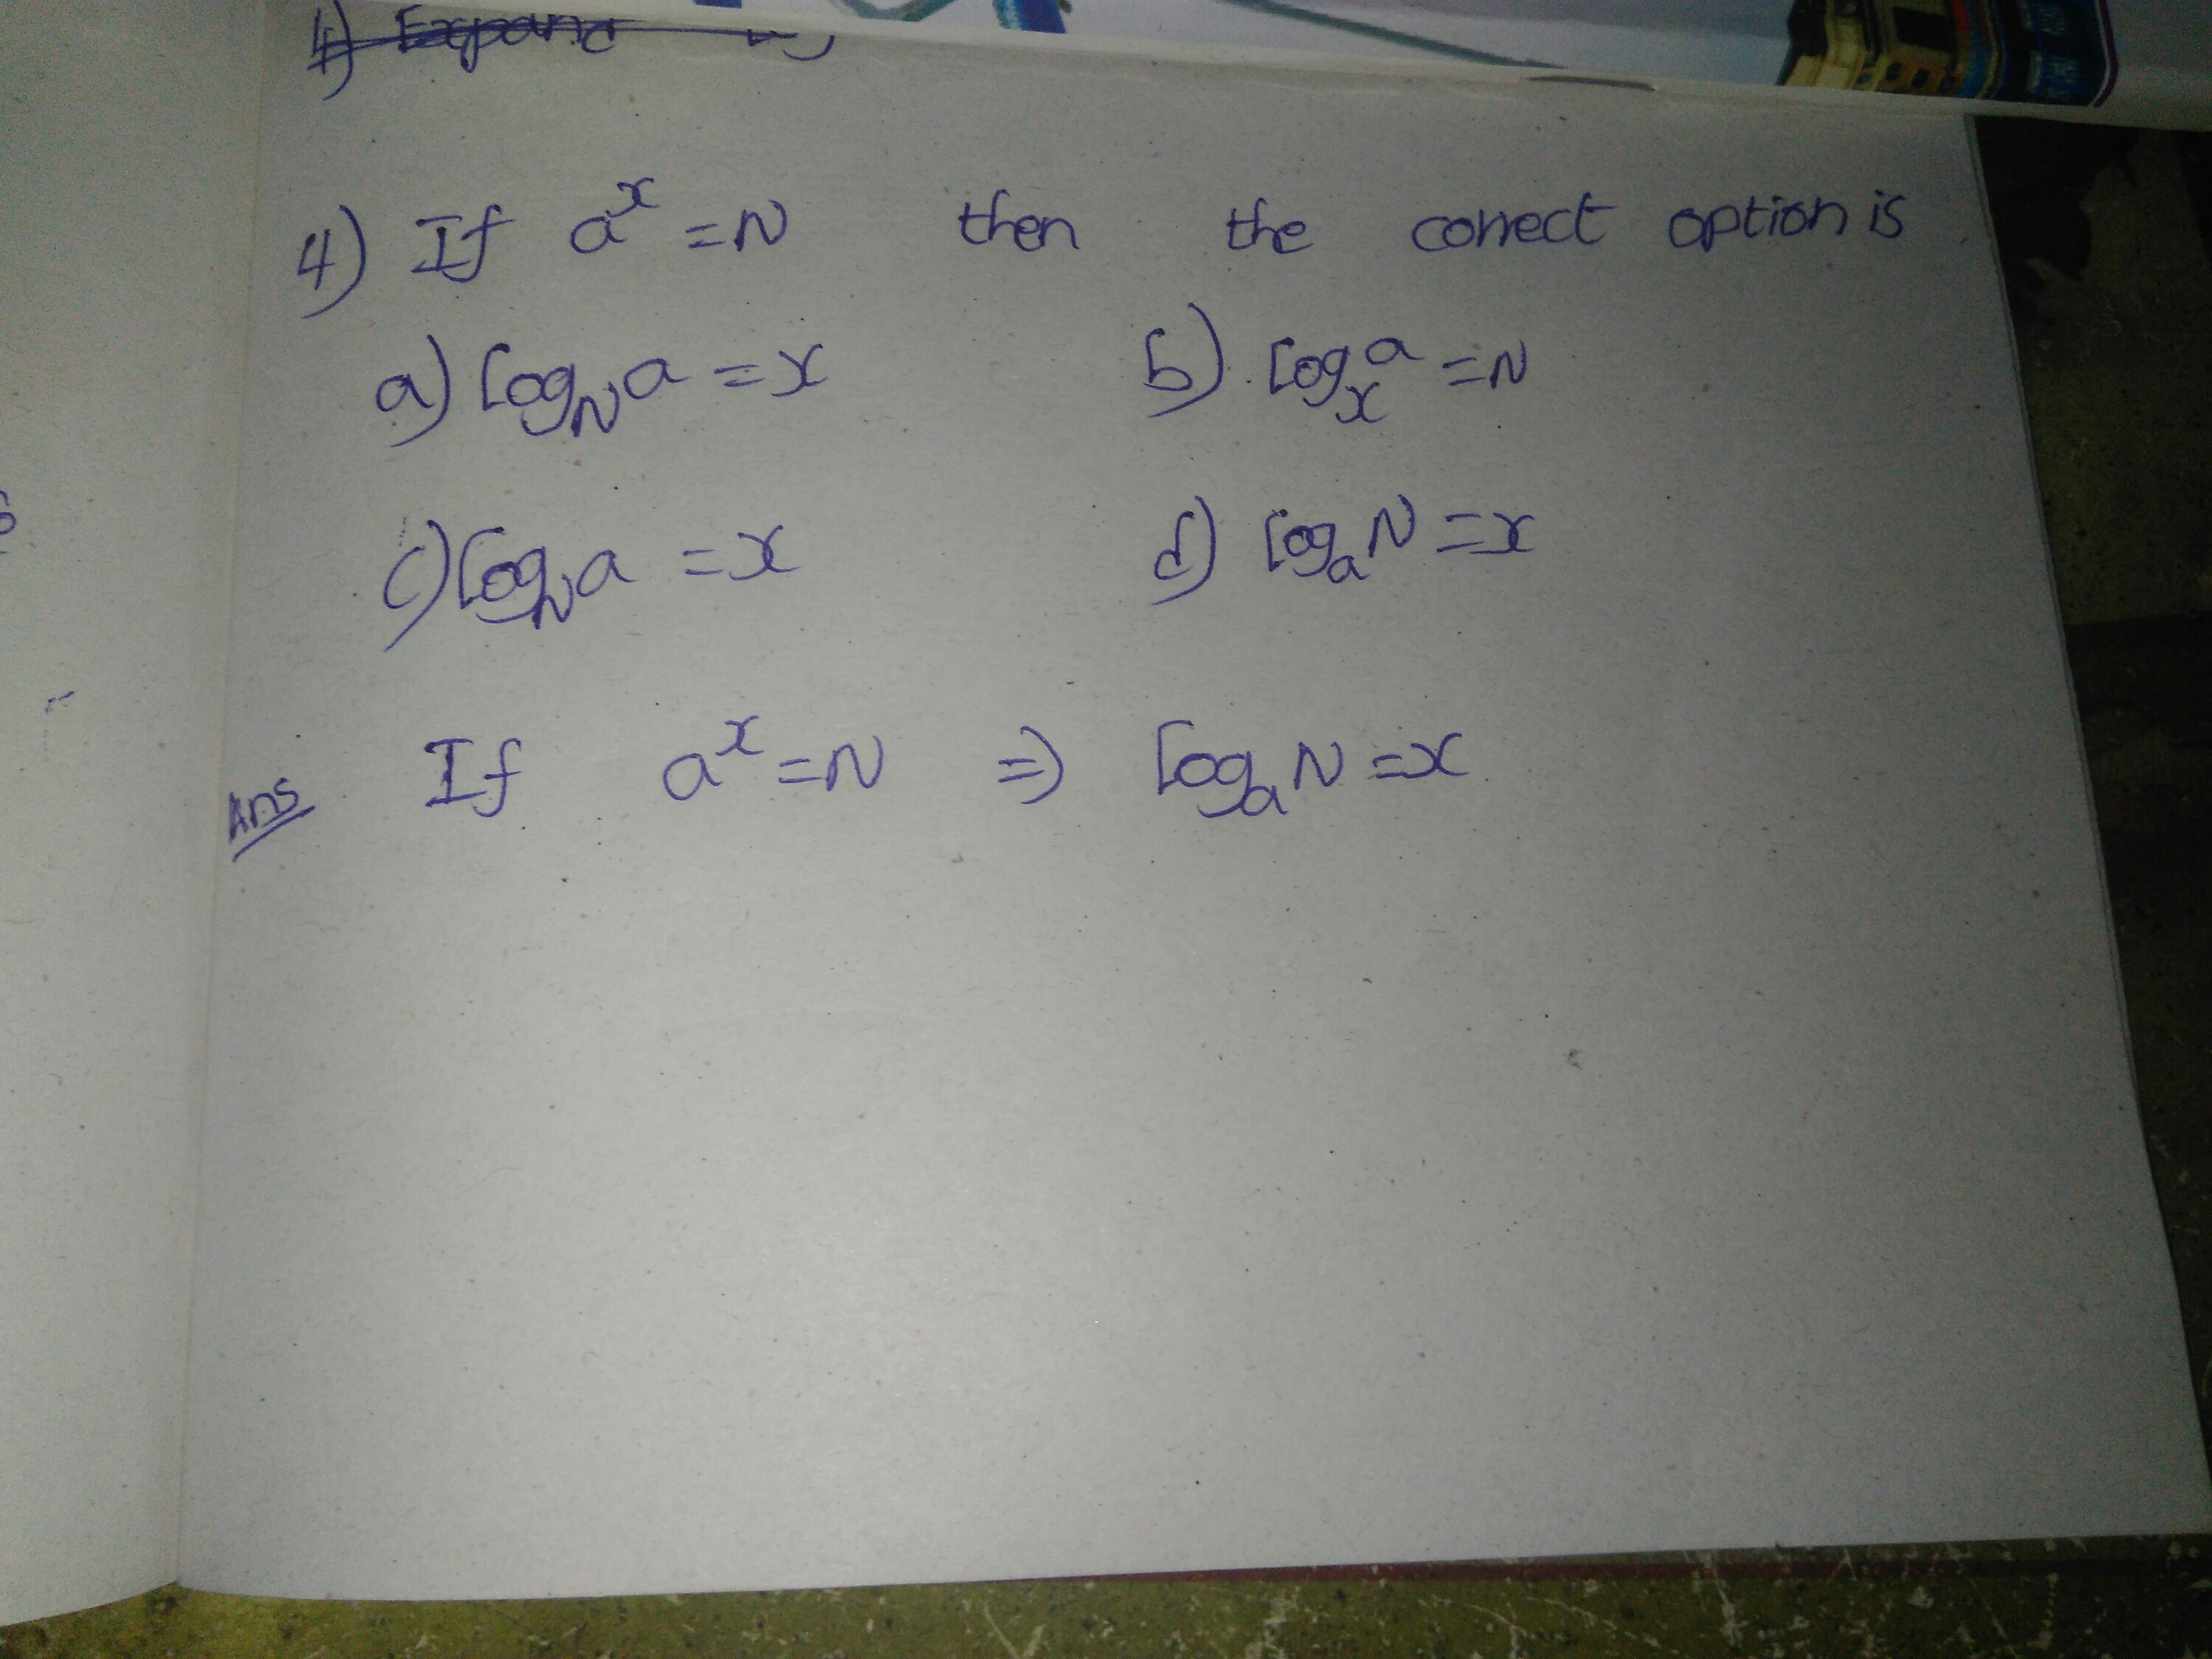 4) Expand
4) If a^x = N then the correct option is
a) log_N a = x b) log_x a = N
c) log_N a = x d) log_a N = x
Ans If a^x = N ⇒ log_a N = x